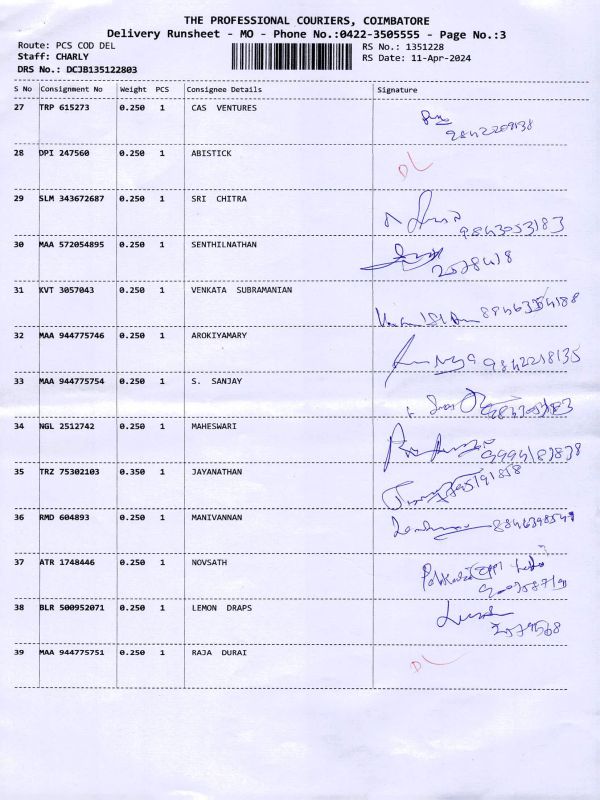 THE PROFESSIONAL COURIERS, COIMBATORE
Delivery Runsheet - MO - Phone No.:0422-3505555 - Page No.:3
Route: PCS COD DEL RS No.: 1351228
Staff: CHARLY RS Date: 11-Apr-2024
DRS No.: DCJB135122803
S No Consignment No Weight PCS Consignee Details Signature
27 TRP 615273 0.250 1 CAS VENTURES
28 DPI 247560 0.250 1 ABISTICK
DL
29 SLM 343672687 0.250 1 SRI CHITRA
9843053183
30 MAA 572054895 0.250 1 SENTHILNATHAN
31 KVT 3057043 0.250 1 VENKATA SUBRAMANIAN
32 MAA 944775746 0.250 1 AROKIYAMARY
9842218135
33 MAA 944775754 0.250 1 S. SANJAY
34 NGL 2512742 0.250 1 MAHESWARI
35 TRZ 75302103 0.350 1 JAYANATHAN
36 RMD 604893 0.250 1 MANIVANNAN
37 ATR 1748446 0.250 1 NOVSATH
38 BLR 500952071 0.250 1 LEMON DRAPS
39 MAA 944775751 0.250 1 RAJA DURAI
DL